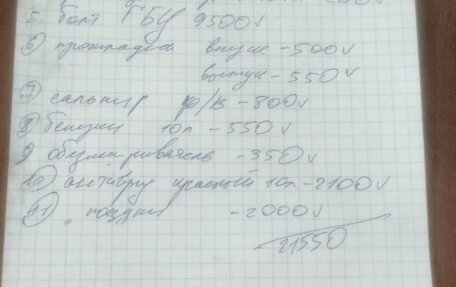 5. болт ГБЦ 9500
6) прокладки впуск - 500
выпуск - 550
7) сальник р/в - 800
8 бензин 10л - 550
9 - 350
10 антифриз красный 10л - 2100
11 - 2000
21550